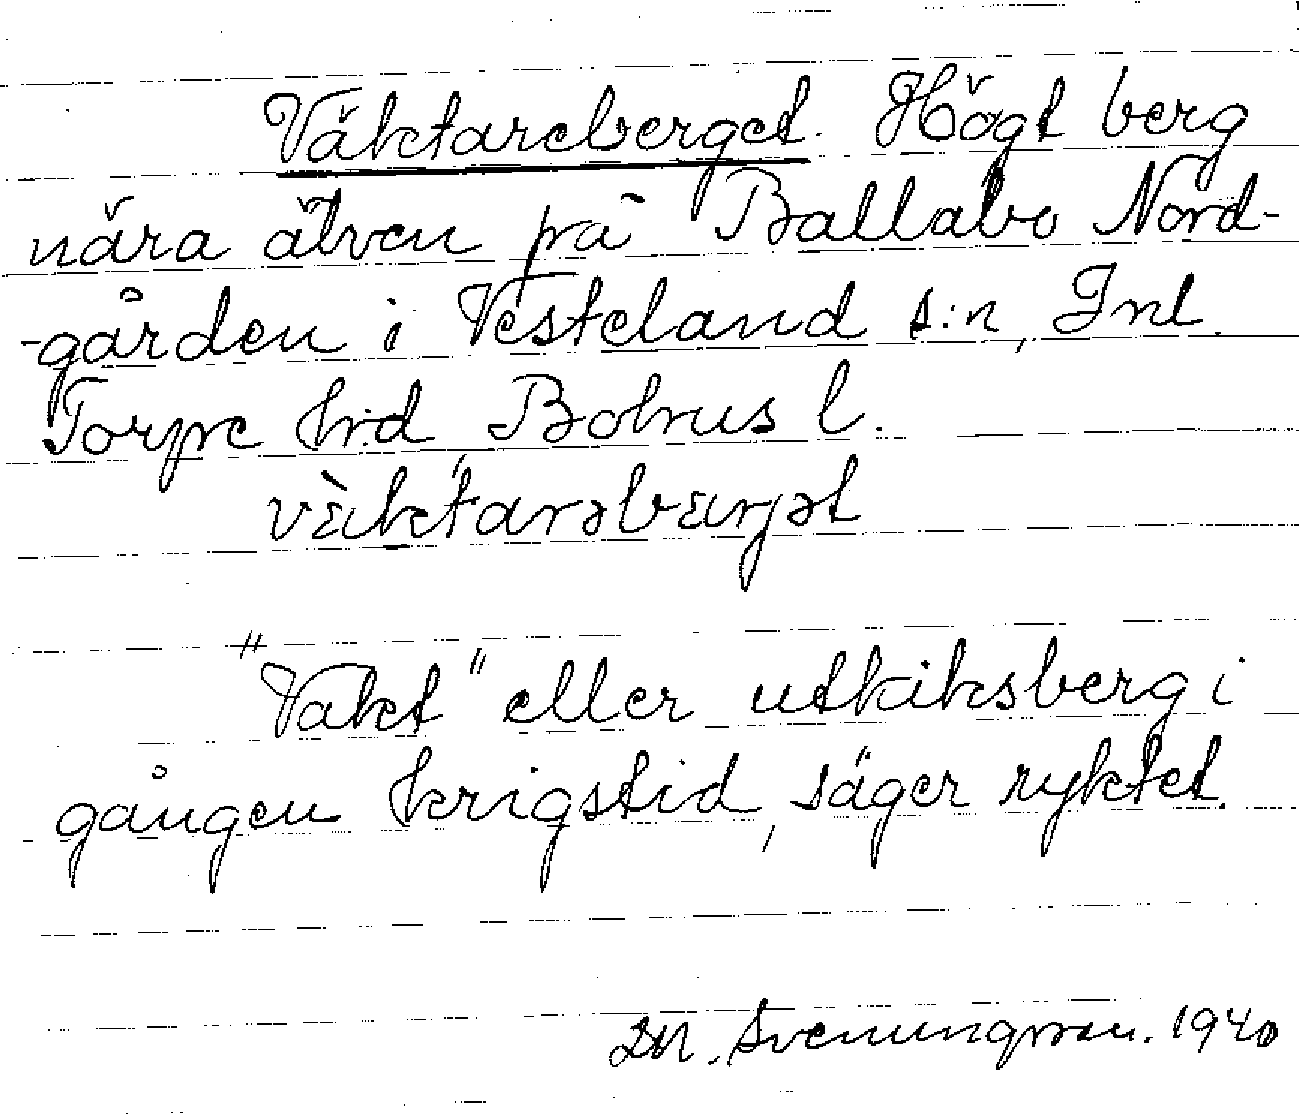 Väktareberget. Högt berg
nära älven på Ballabo Nord-
-gården i Vesteland s:n, Inl.
Torpe hrd Bohus l.
vɛ̀kt́arəbærjət
"Vakt" eller utkiksberg i
gången krigstid, säger ryktet.
M. Svenungsson. 1940